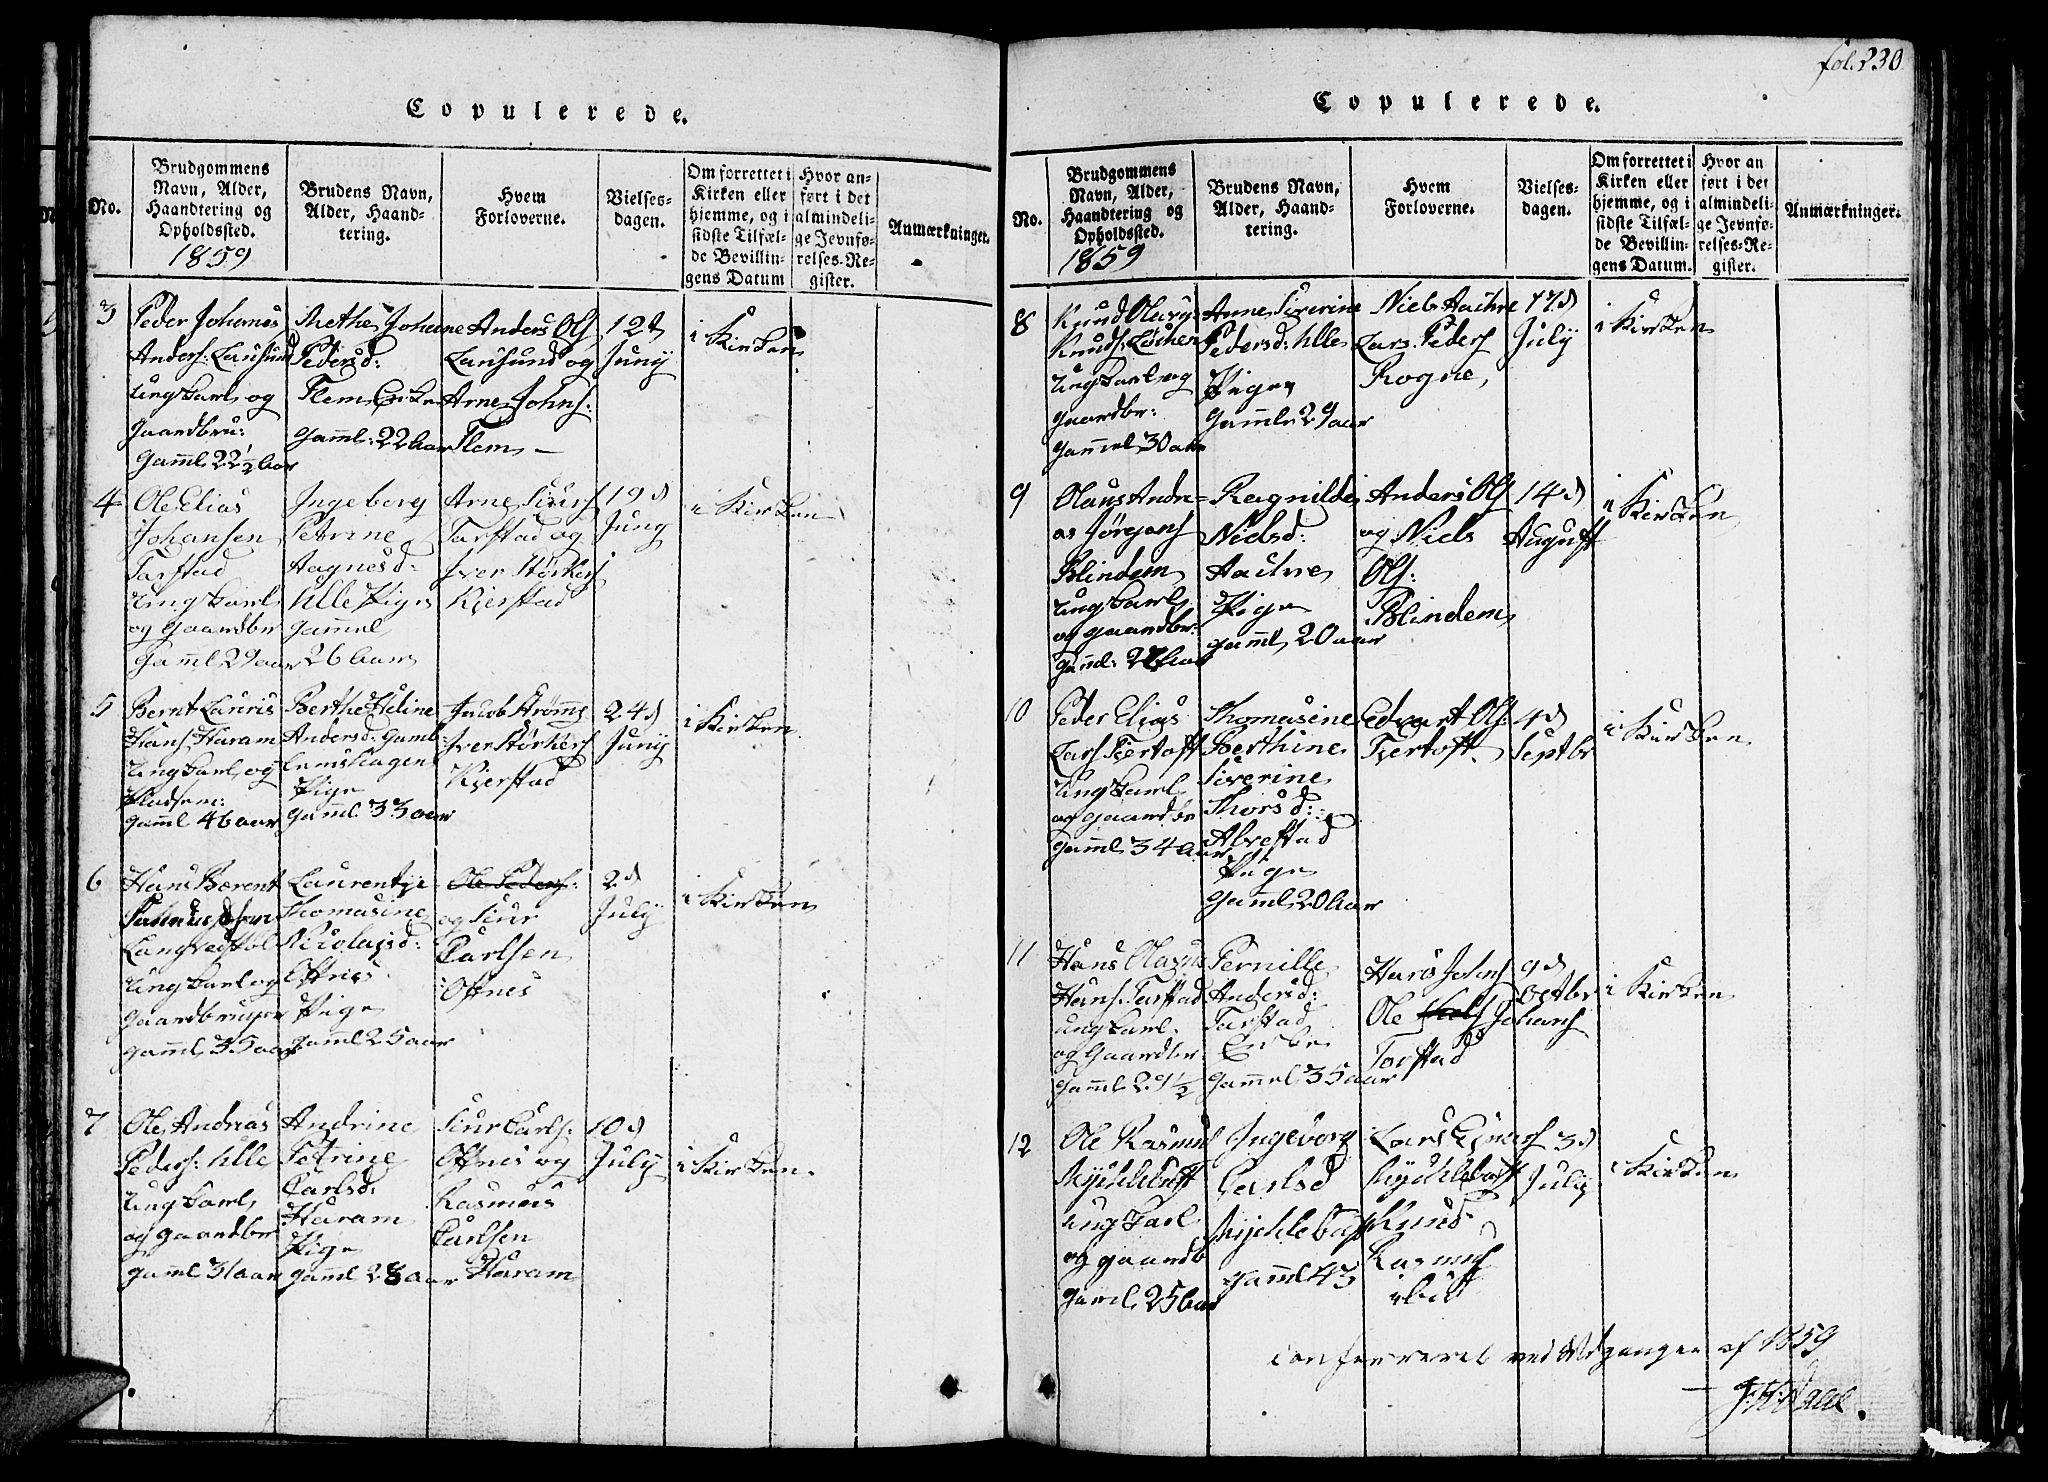 Copulerede.
No.
Brudgommens
Navn, Alder,
Haandtering og
Opholdssted.
1859
Brudens Navn,
Alder, Haand-
tering.
Hvem
Forloverne.
Vielses-
dagen.
Om forrettet i
Kirken eller
hjemme, og i
sidste Tilfæl-
de Bevillin-
gens Datum
Hvor an-
ført i det
almindeli-
ge Jevnfø-
relses-Re-
gister.
Anmærkninger.
3
Peder Johanes
Anders: Lausund
Ungkarl og
gaardbru:
gaml 22½ Aar
Grethe Johane
Pedersd:
Flem Enke
gaml: 22 Aar
Anders Ols
Lausund og
Arne Johns:
Flem –
12d
Juny
i Kirken
4
Ole Elias
Johansen
Tarstad
Ungkarl
og gaardbr
gaml 29 aar
Ingeborg
Petrine
Aagnesd:
Ulle Pige
gammel
26 Aar
Arne Siurs
Tarstad og
Iver Størkers
Kierstad
19d
Juny
i Kirken
5
Bernt Lauris
Hans Haram
Ungkarl og
Pladsem:
gaml 46 aar
Berthe Heline
Andersd: Gaml
emshagen
Pige
gaml 33 aar
Jacob Strømmes
Iver Størkers
Kierstad
24d
Juny
i Kirken
6
Hans Bærent
Ungkarl og
gaardbruger
gaml 35 aar
Laurentze
Thomasine
Nicolaysd:
Ossnes
Pige
gaml 25 aar
Ole Peders:
og Siur
Carlsen
Ossnes
2d
July
i Kirken
7
Ole Andreas
Peders: Ulle
Ungkarl
og gaardbr
gaml 31 aar
Andrine
Petrine
Carlsd:
Haram
Pige
gaml 28 aar
Siur Carls:
Ossnes og
Rasmus
Carlsen
Haram
10d
July
i Kirken
fol. 230
Copulerede.
No.
Brudgommens
Navn, Alder,
Haandtering og
Opholdssted.
1859
Brudens Navn,
Alder, Haand-
tering.
Hvem
Forloverne.
Vielses-
dagen.
Om forrettet i
Kirken eller
hjemme, og i
sidste Tilfæl-
de Bevillin-
gens Datum.
Hvor an
ført i det
almindeli-
ge Jevnfø-
relses-Re-
gister.
Anmærkninger.
8
Knud Olaus
Knuds: Løchen
Ungkarl og
gaardbr:
gammel 30 aar
Anne Siverine
Pedersd: Ulle
Pige
gaml 29 aar
Niels Aachre
Lars Peders
Rogne
17d
July
i Kirken
9
Olaus Andre=
as Jørgens
Blindem
Ungkarl
og gaardbr:
gaml: 27 Aar
Ragnilde
Nielsd:
Aachre
Pige
gaml 20 aar
Anders Ols
og Niels
Ols:
Blindem
14d
August
i Kirken
10
Peder Elias
Lars Fiertoft
Ungkarl
og gaardbr
gaml 34 aar
Thomasine
Berthine
Siverine
Thorsd:
Alvestad
Pige
gaml 20 Aar
Edvart Ols:
Fiertoft
4d
Septbr
i Kirken
11
Hans Olaus
Hans: Tarstad
Ungkarl
og Gaardbr
gaml 29½
Pernille
Andersd:
Tarstad
Enke
gammel 35 aar
Hans Johns
Ole Johans
Torstad
9d
Octbr
i Kirken
12
Ole Rasmus
Mychlebust
Ungkarl
og gaardb
gaml 25 Aar
Ingeborg
Carlsd
Mychlebust
gaml 43
Lars Einars
Mychlebost
Knud
Rasmus
ibid
3d
July
i Kirken
Confereret ved Udgangen af 1859